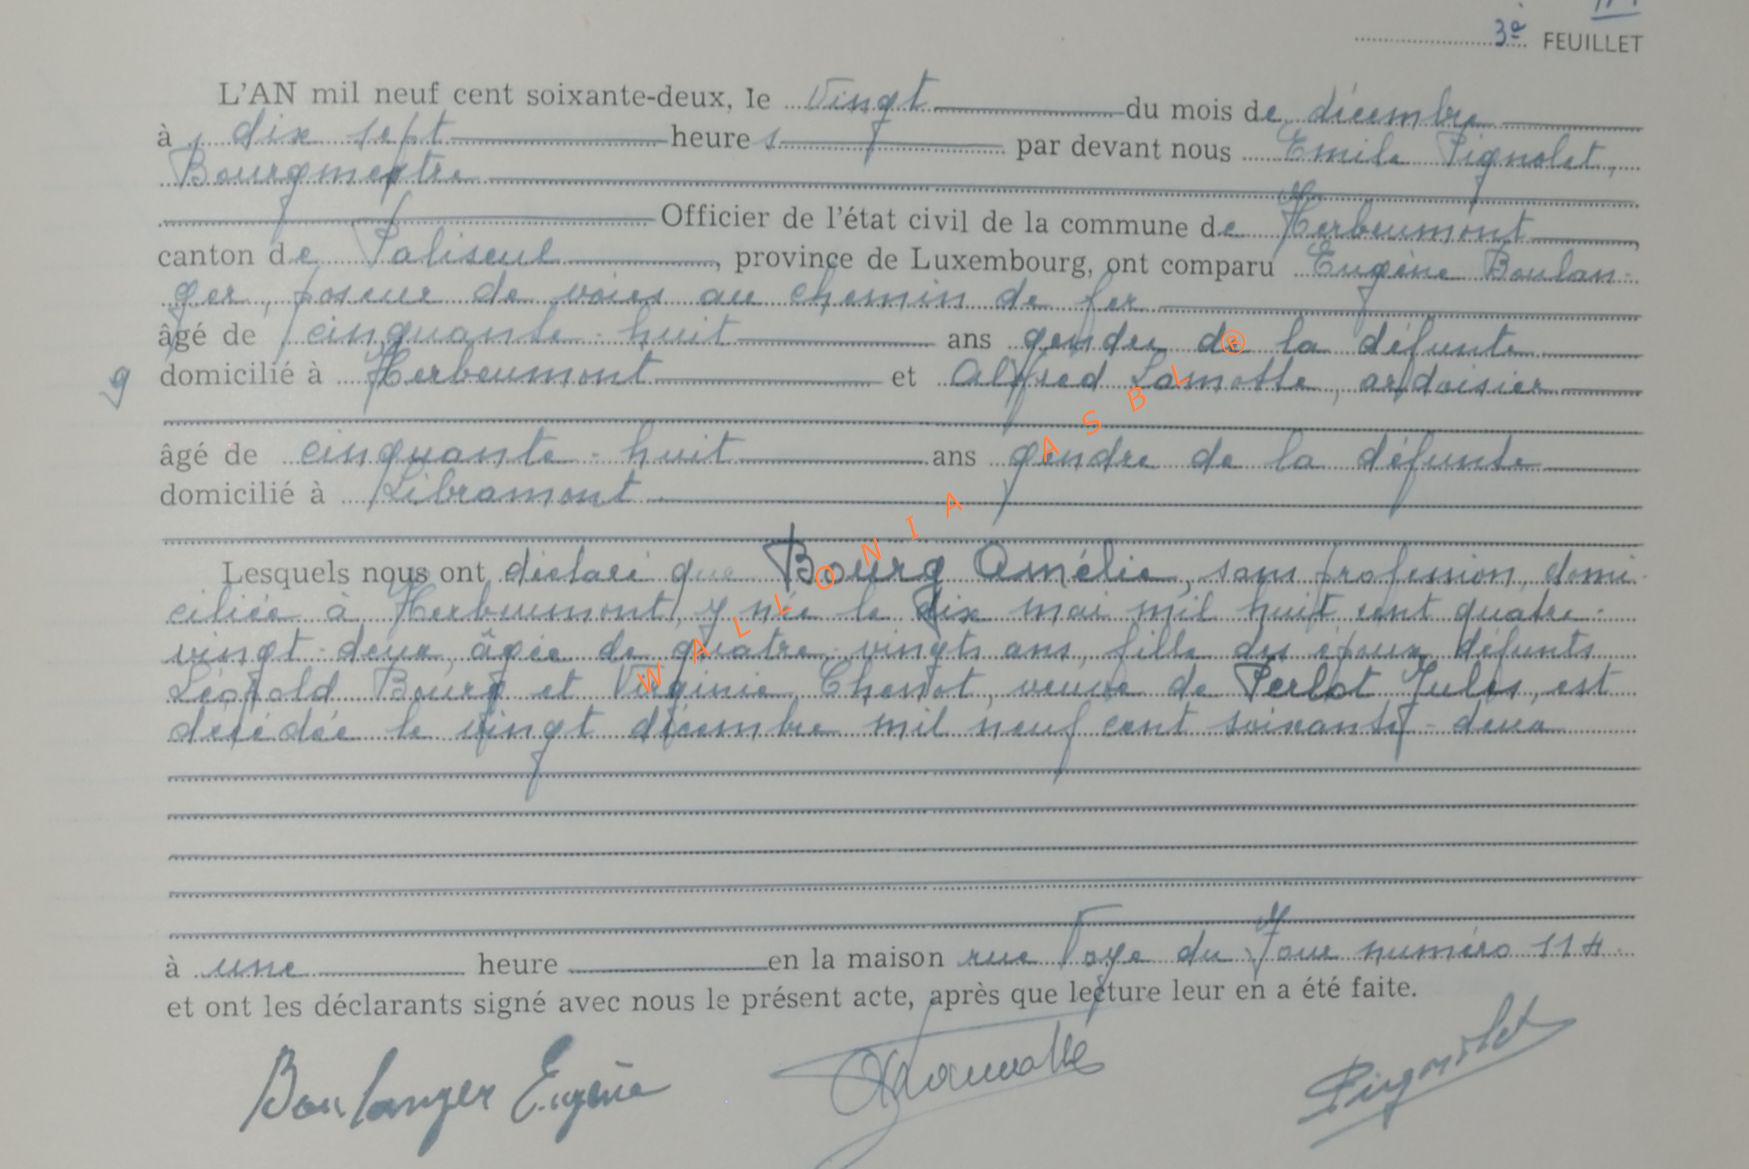 3e FEUILLET
L'AN mil neuf cent soixante-deux, le vingt du mois de décembre
à dix sept heures par devant nous Emile Pignolet,
Bourgmestre
Officier de l'état civil de la commune de Herbeumont,
canton de Paliseul, province de Luxembourg, ont comparu Eugène Boulan-
ger, poseur de voies au chemin de fer
âgé de cinquante-huit ans gendre de la défunte
9 domicilié à Herbeumont et Alfred Lamotte, ardoisier
âgé de cinquante-huit ans gendre de la défunte
domicilié à Libramont
Lesquels nous ont déclaré que Bourg Amélie, sans profession, domi-
ciliée à Herbeumont, y née le dix mai mil huit cent quatre-
vingt-deux, âgée de quatre-vingts ans, fille des époux défunts
Léopold Bourg et Virginie, veuve de Perlot Jules, est
décédée le vingt décembre mil neuf cent soixante-deux
à une heure en la maison rue Voye du Four numéro 114
et ont les déclarants signé avec nous le présent acte, après que lecture leur en a été faite.
Boulanger Eugène Lamotte Pignolet
WALLONIA ASBL ®